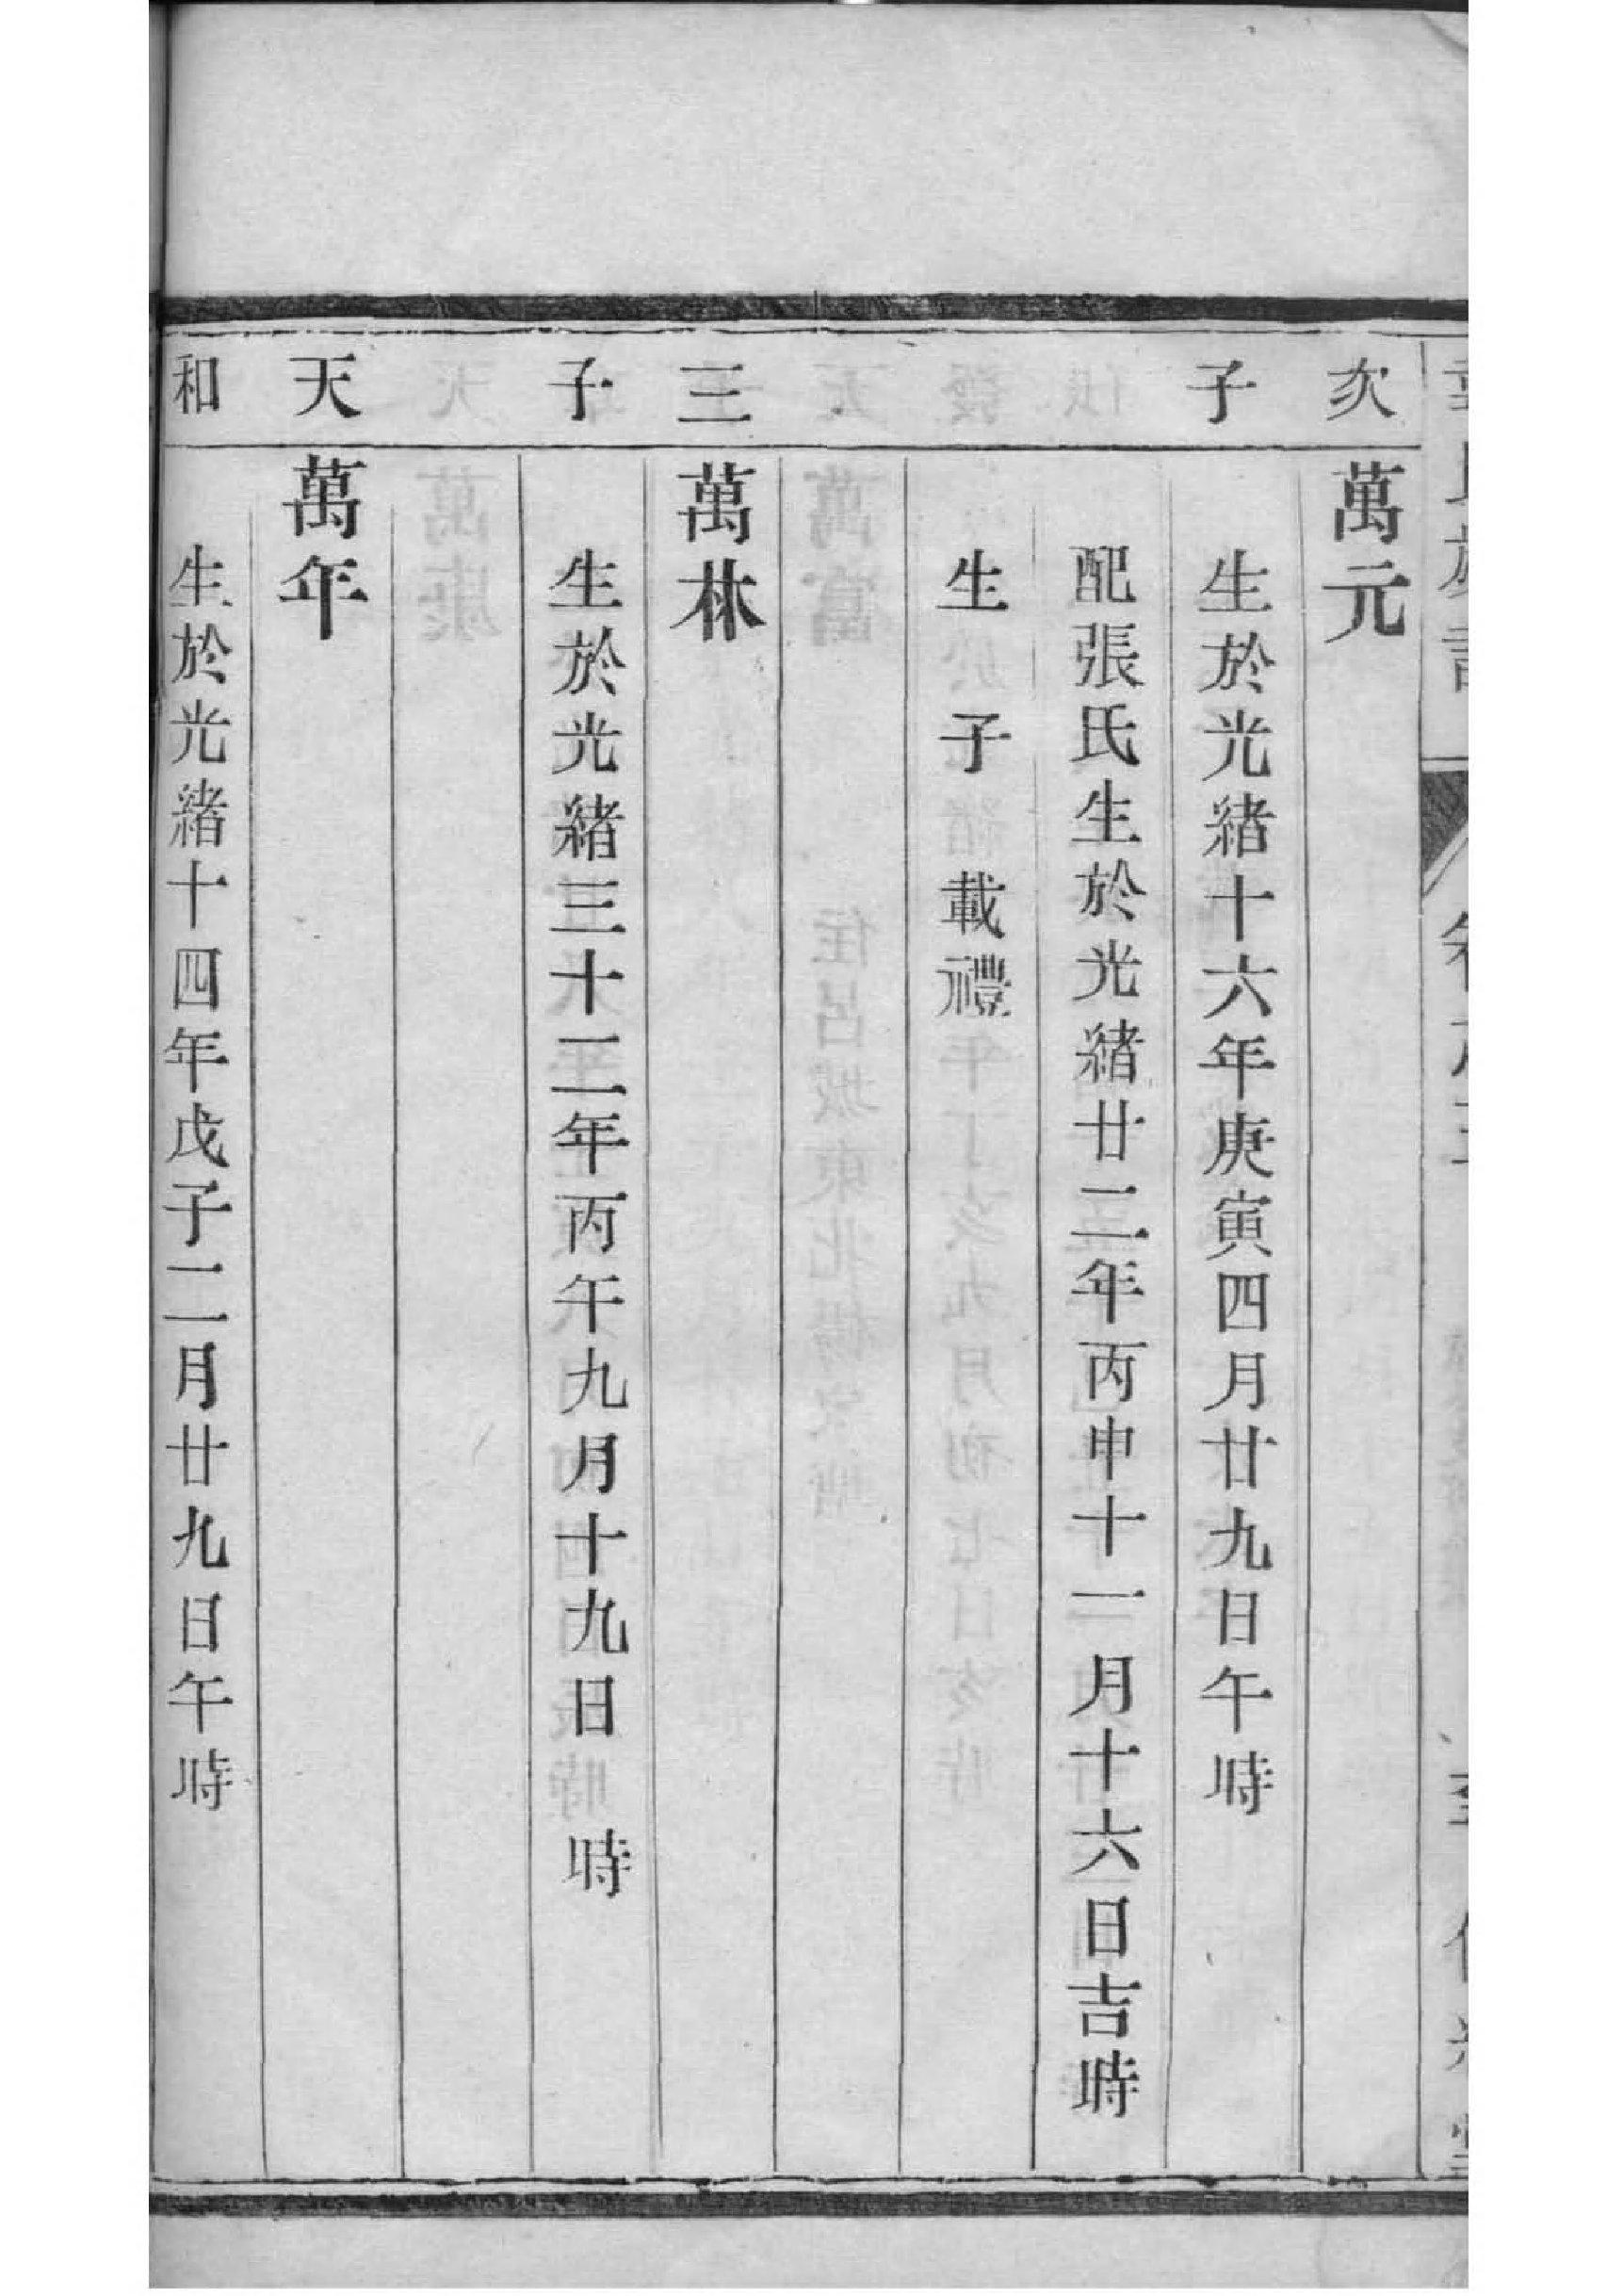 次 萬元
子 生於光緒十六年庚寅四月廿九日午時
配張氏生於光緒廿二年丙申十一月十六日吉時
生子 載禮
三 萬林
子 生於光緒三十二年丙午九月十九日 時
天 萬年
和 生於光緒十四年戊子二月廿九日午時